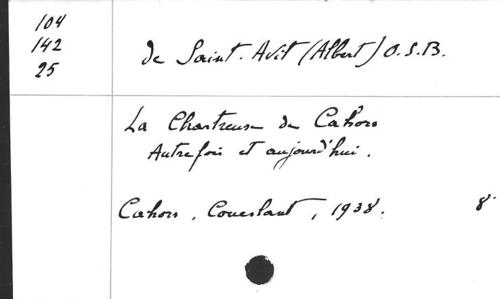 104
142
25
de Saint-Avit (Albert) O.S.B.
La Chartreuse de Cahors
Autrefois et aujourd'hui.
Cahors, Coueslant, 1938. 8°